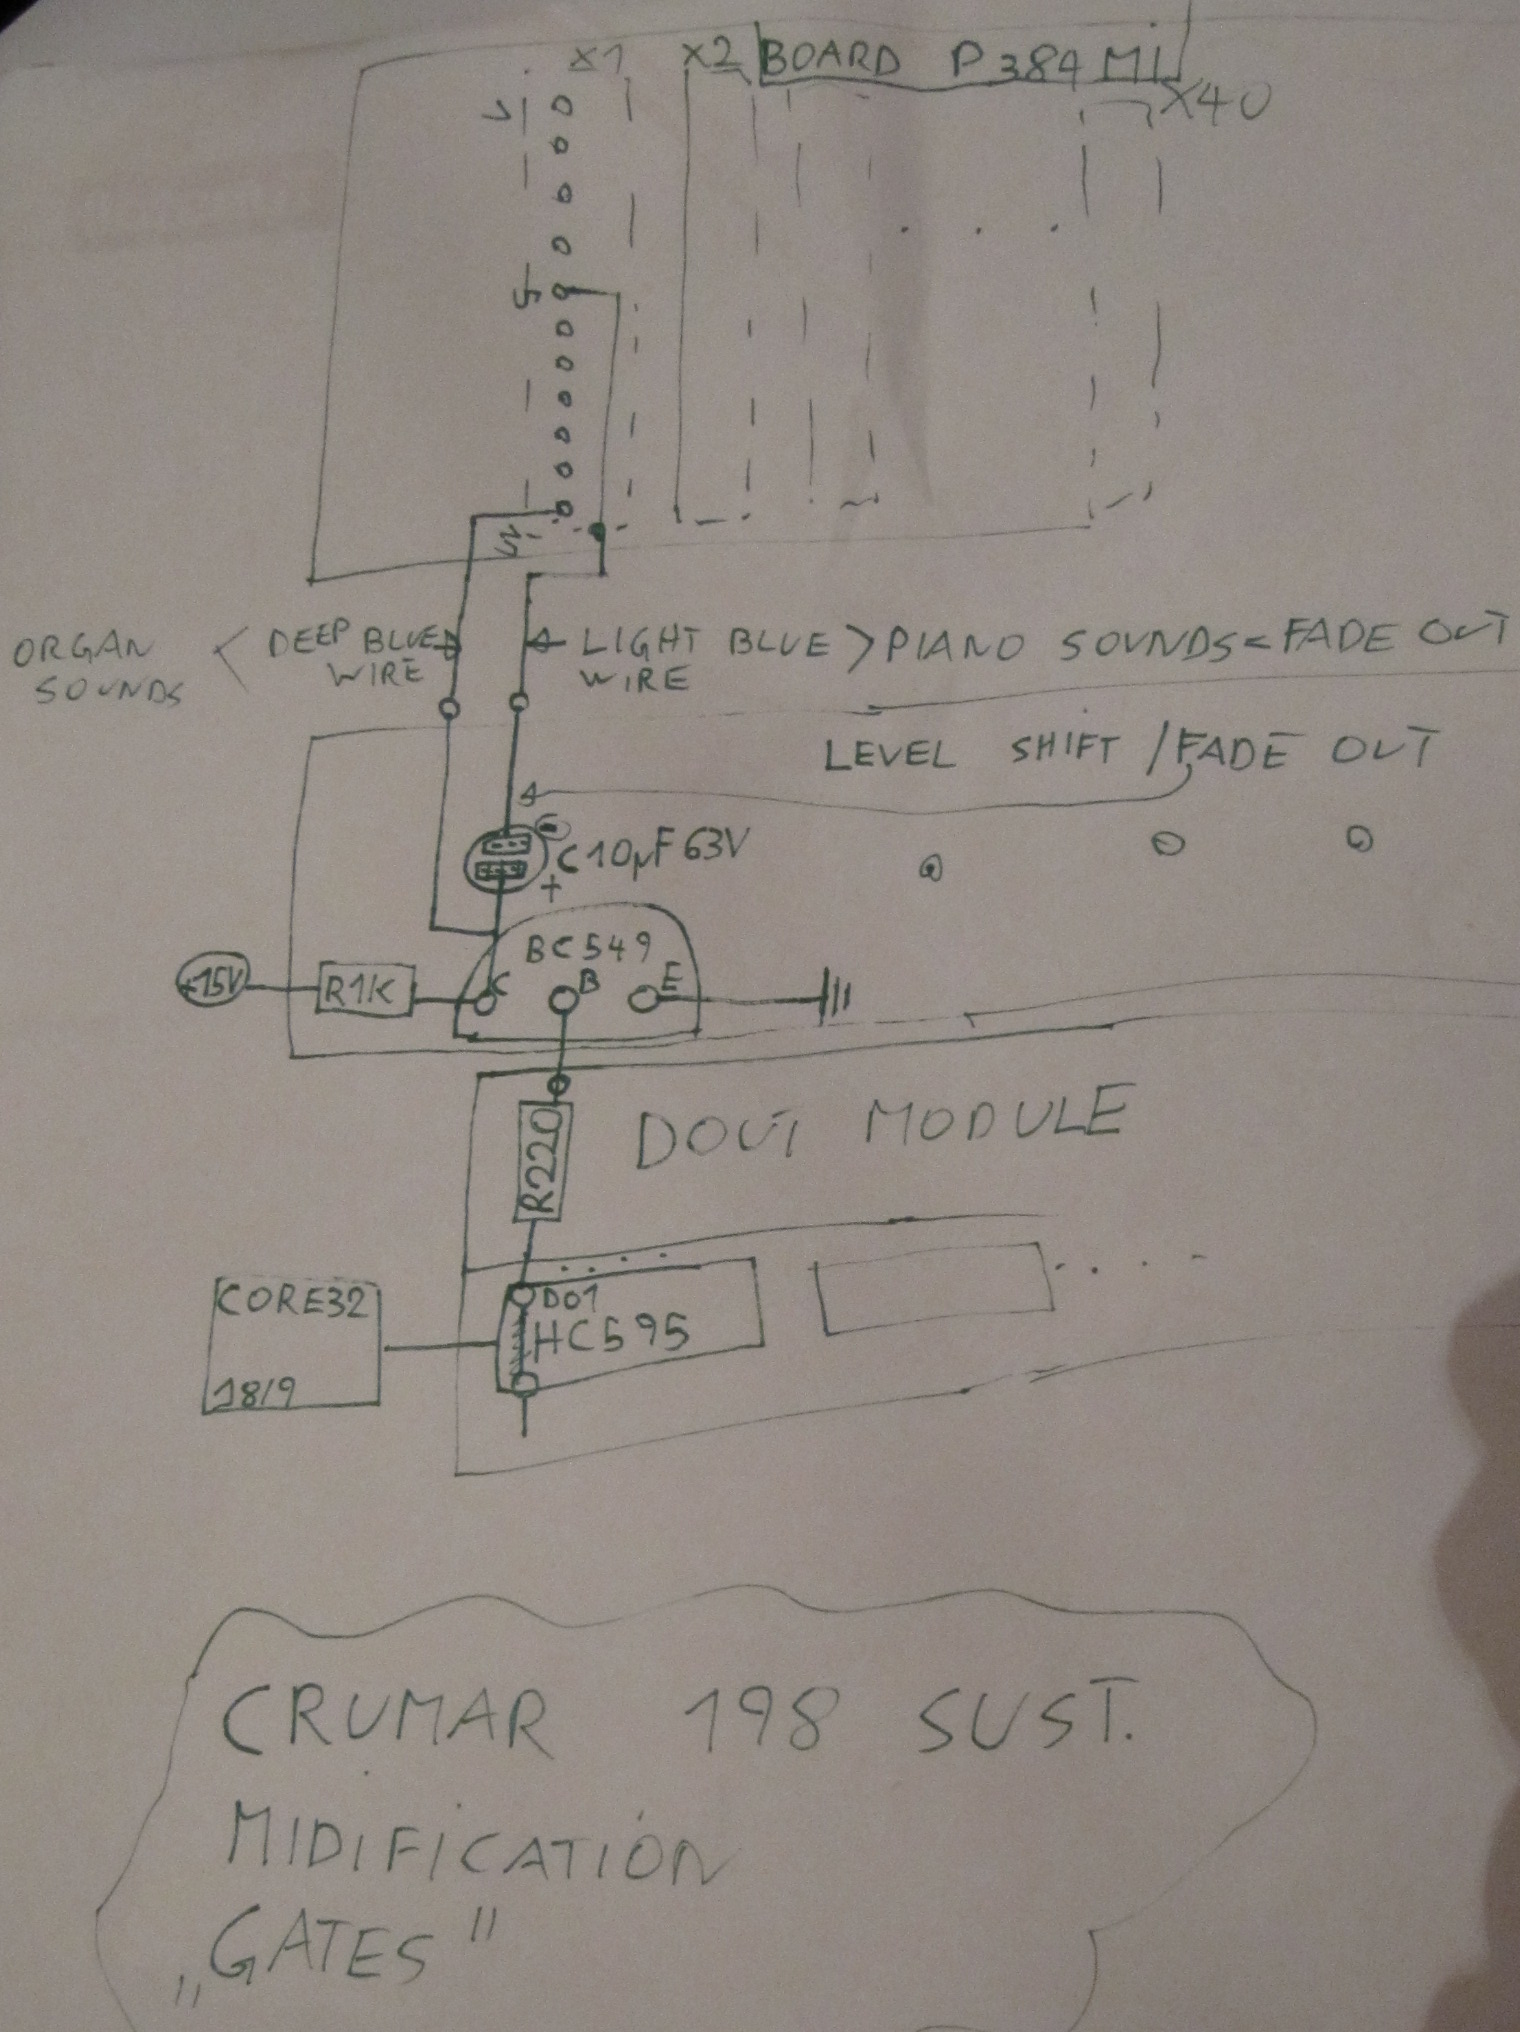 X1 X2 BOARD P384 MI
X40
1
5
ORGAN SOUNDS < DEEP BLUE WIRE
LIGHT BLUE WIRE > PIANO SOUNDS < FADE OUT
LEVEL SHIFT / FADE OUT
-
C10µF63V
+
BC549
+15V R1K C B E
R220
DOUT MODULE
DO1
HC595
CORE32
18/9
CRUMAR 198 SUST.
MIDIFICATION
„GATES"